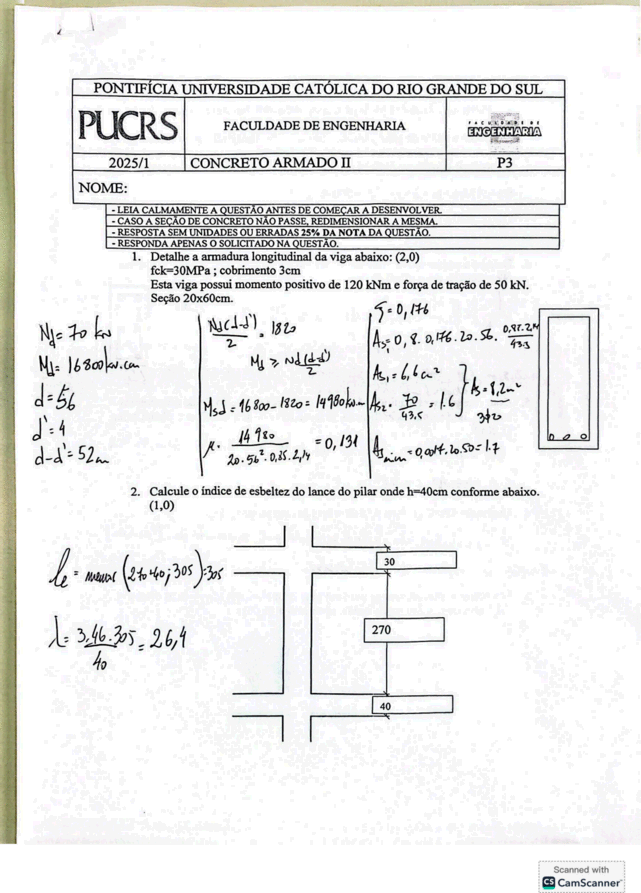 PONTIFÍCIA UNIVERSIDADE CATÓLICA DO RIO GRANDE DO SUL
PUCRS
FACULDADE DE ENGENHARIA
FACULDADE DE
ENGENHARIA
2025/1
CONCRETO ARMADO II
P3
NOME:
- LEIA CALMAMENTE A QUESTÃO ANTES DE COMEÇAR A DESENVOLVER.
- CASO A SEÇÃO DE CONCRETO NÃO PASSE, REDIMENSIONAR A MESMA.
- RESPOSTA SEM UNIDADES OU ERRADAS 25% DA NOTA DA QUESTÃO.
- RESPONDA APENAS O SOLICITADO NA QUESTÃO.
1. Detalhe a armadura longitudinal da viga abaixo: (2,0)
fck=30MPa ; cobrimento 3cm
Esta viga possui momento positivo de 120 kNm e força de tração de 50 kN.
Seção 20x60cm.
Nd = 70 kN
Md = 16800 kN.cm
d = 56
d' = 4
d-d' = 52cm
Nd(d-d')/2 = 1820
Md ≥ Nd(d-d')/2
Msd = 16800 - 1820 = 14980 kN.m
μ = 14980/(20.56².0,85.2,14) = 0,131
= 0,176
As1 = 0,8.0,176.20.56.(0,85.2,14)/43.5
As1 = 6,6 cm²
As2 = 70/43.5 = 1.6
As = 8,2 cm²
3φ20
Asmin = 0,0014.20.50 = 1.7
2. Calcule o índice de esbeltez do lance do pilar onde h=40cm conforme abaixo.
(1,0)
le = menor (270+40; 305) = 305
λ = 3,46.305/40 = 26,4
30
270
40
Scanned with
CS CamScanner